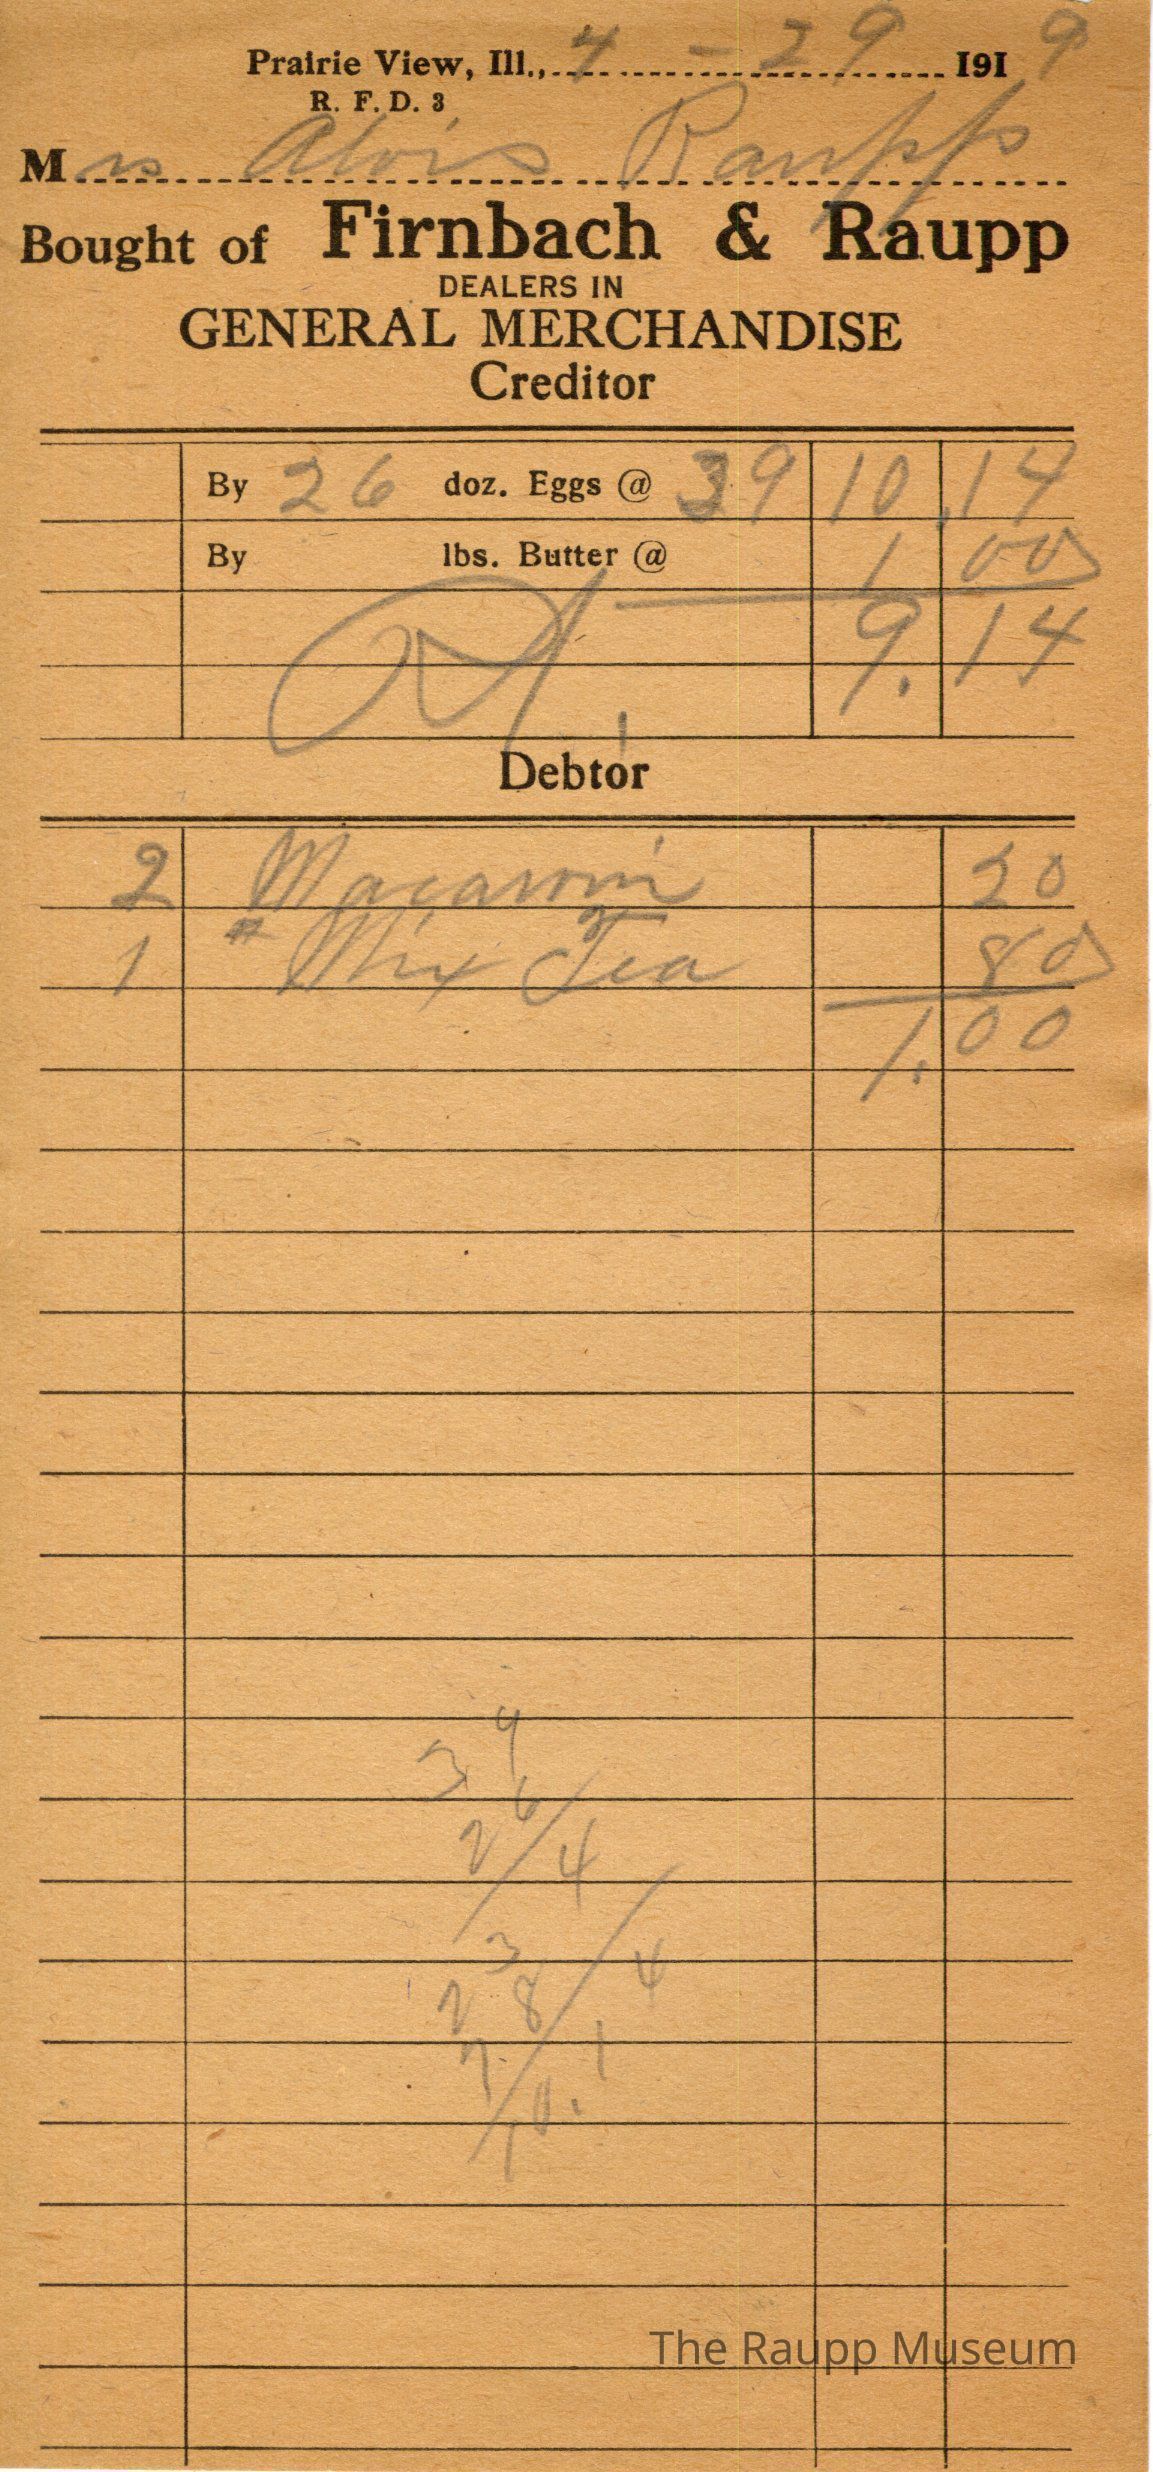 Prairie View, Ill., 4 - 29 1919
R. F. D. 3
Mrs Alois Raupp
Bought of Firnbach & Raupp
DEALERS IN
GENERAL MERCHANDISE
Creditor
By 26 doz. Eggs @ 39 10.14
By lbs. Butter @ 1 00
9.14
Debtor
2 Macaroni 20
1 # Mix Tea 80
1.00
39
26
234
78
10.14
The Raupp Museum